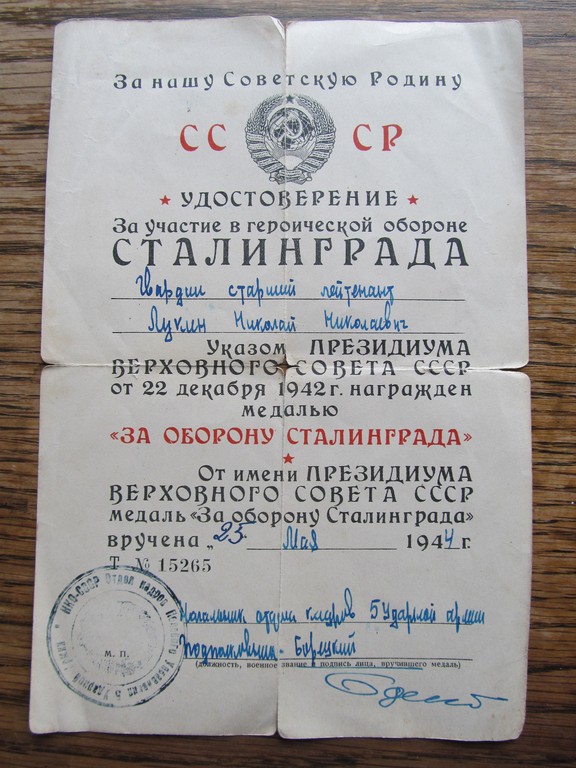 За нашу Советскую Родину
СС СР
УДОСТОВЕРЕНИЕ
За участие в героической обороне
СТАЛИНГРАДА
Гвардии старший лейтенант
Лукин Николай Николаевич
Указом ПРЕЗИДИУМА
ВЕРХОВНОГО СОВЕТА СССР
от 22 декабря 1942 г. награжден
медалью
«ЗА ОБОРОНУ СТАЛИНГРАДА»
От имени ПРЕЗИДИУМА
ВЕРХОВНОГО СОВЕТА СССР
медаль «За оборону Сталинграда»
вручена „25 Мая 1944 г.
Т № 15265
Начальник отдела кадров 5 Ударной армии
Подполковник Борецкий
М. П.
(должность, военное звание и подпись лица, вручившего медаль)
НКО-СССР Отдел кадров 5 Ударной